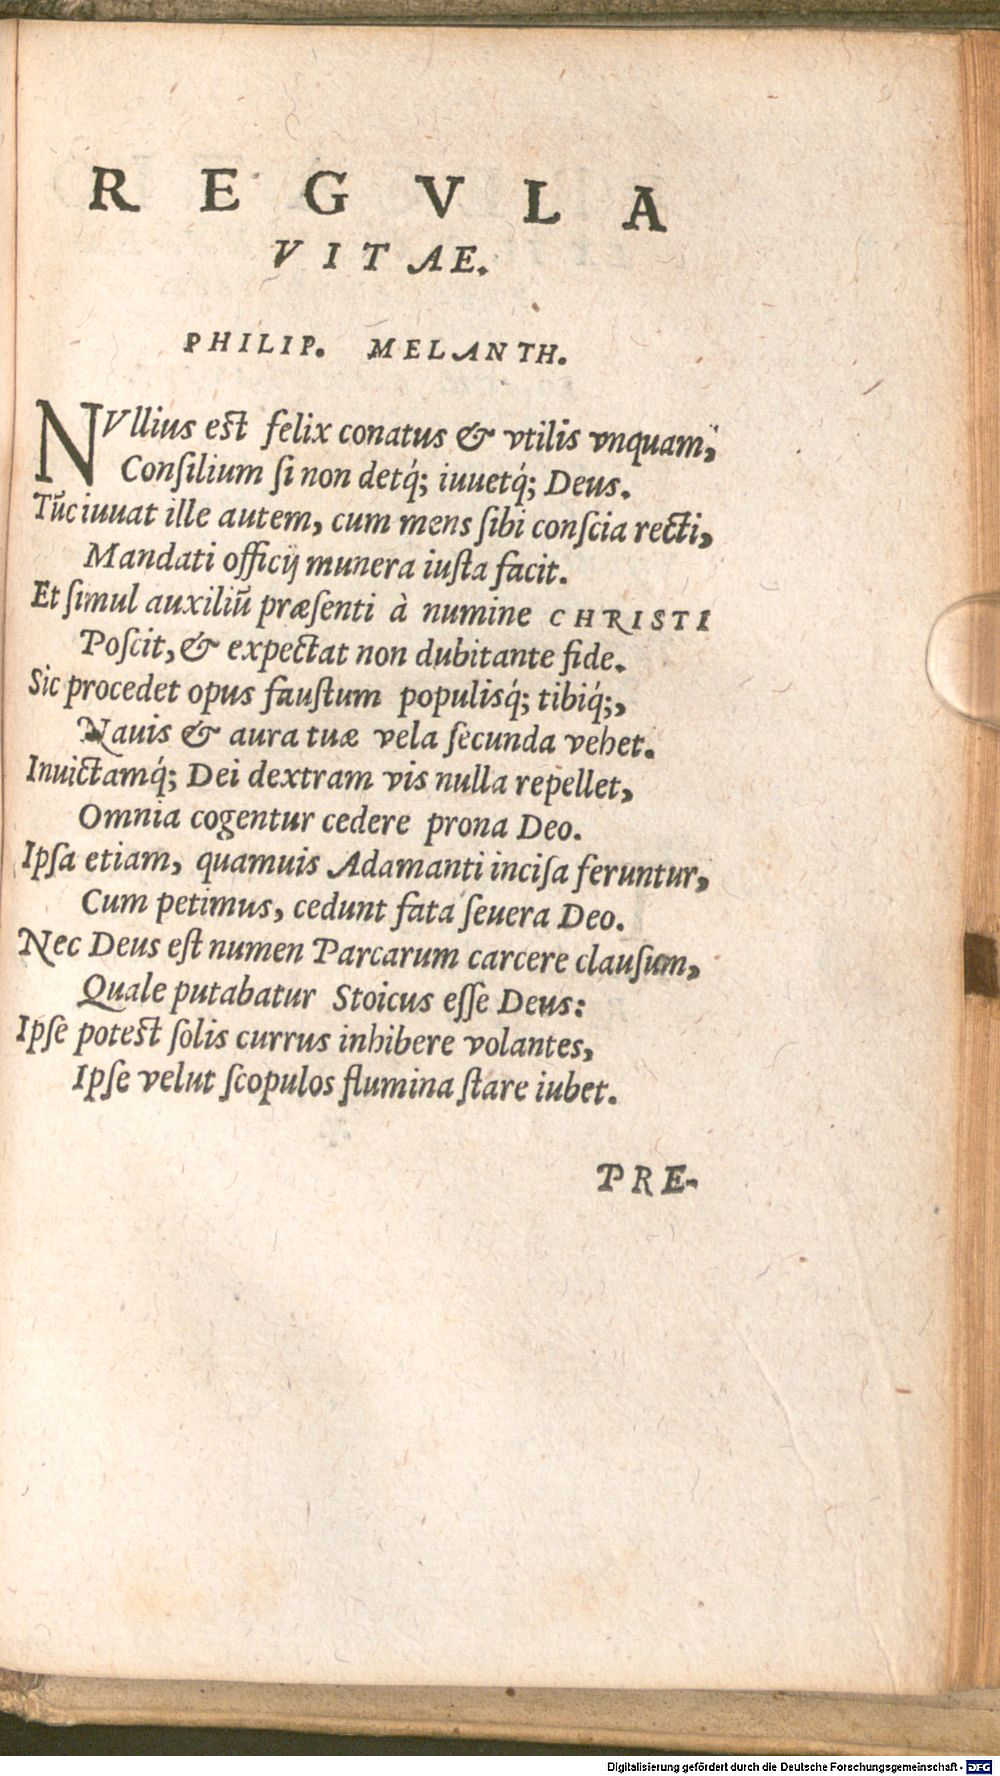 REGVLA
VITAE.
PHILIP. MELANTH.
NVllius est felix conatus & vtilis vnquam,
Conſilium ſi non detq́; iuuetq́; Deus.
Tūc iuuat ille autem, cum mens ſibi conſcia recti,
Mandati officij munera iuſta facit.
Et ſimul auxiliū præſenti à numine CHRISTI
Poſcit, & expectat non dubitante fide.
Sic procedet opus fauſtum populisq́; tibiq́;,
Nauis & aura tuæ vela ſecunda vehet.
Inuictamq́; Dei dextram vis nulla repellet,
Omnia cogentur cedere prona Deo.
Ipſa etiam, quamuis Adamanti inciſa feruntur,
Cum petimus, cedunt fata ſeuera Deo.
Nec Deus eſt numen Parcarum carcere clauſum,
Quale putabatur Stoicus eſſe Deus:
Ipſe potest ſolis currus inhibere volantes,
Ipſe velut ſcopulos flumina ſtare iubet.
PRE-
Digitalisierung gefördert durch die Deutsche Forschungsgemeinschaft - DFG